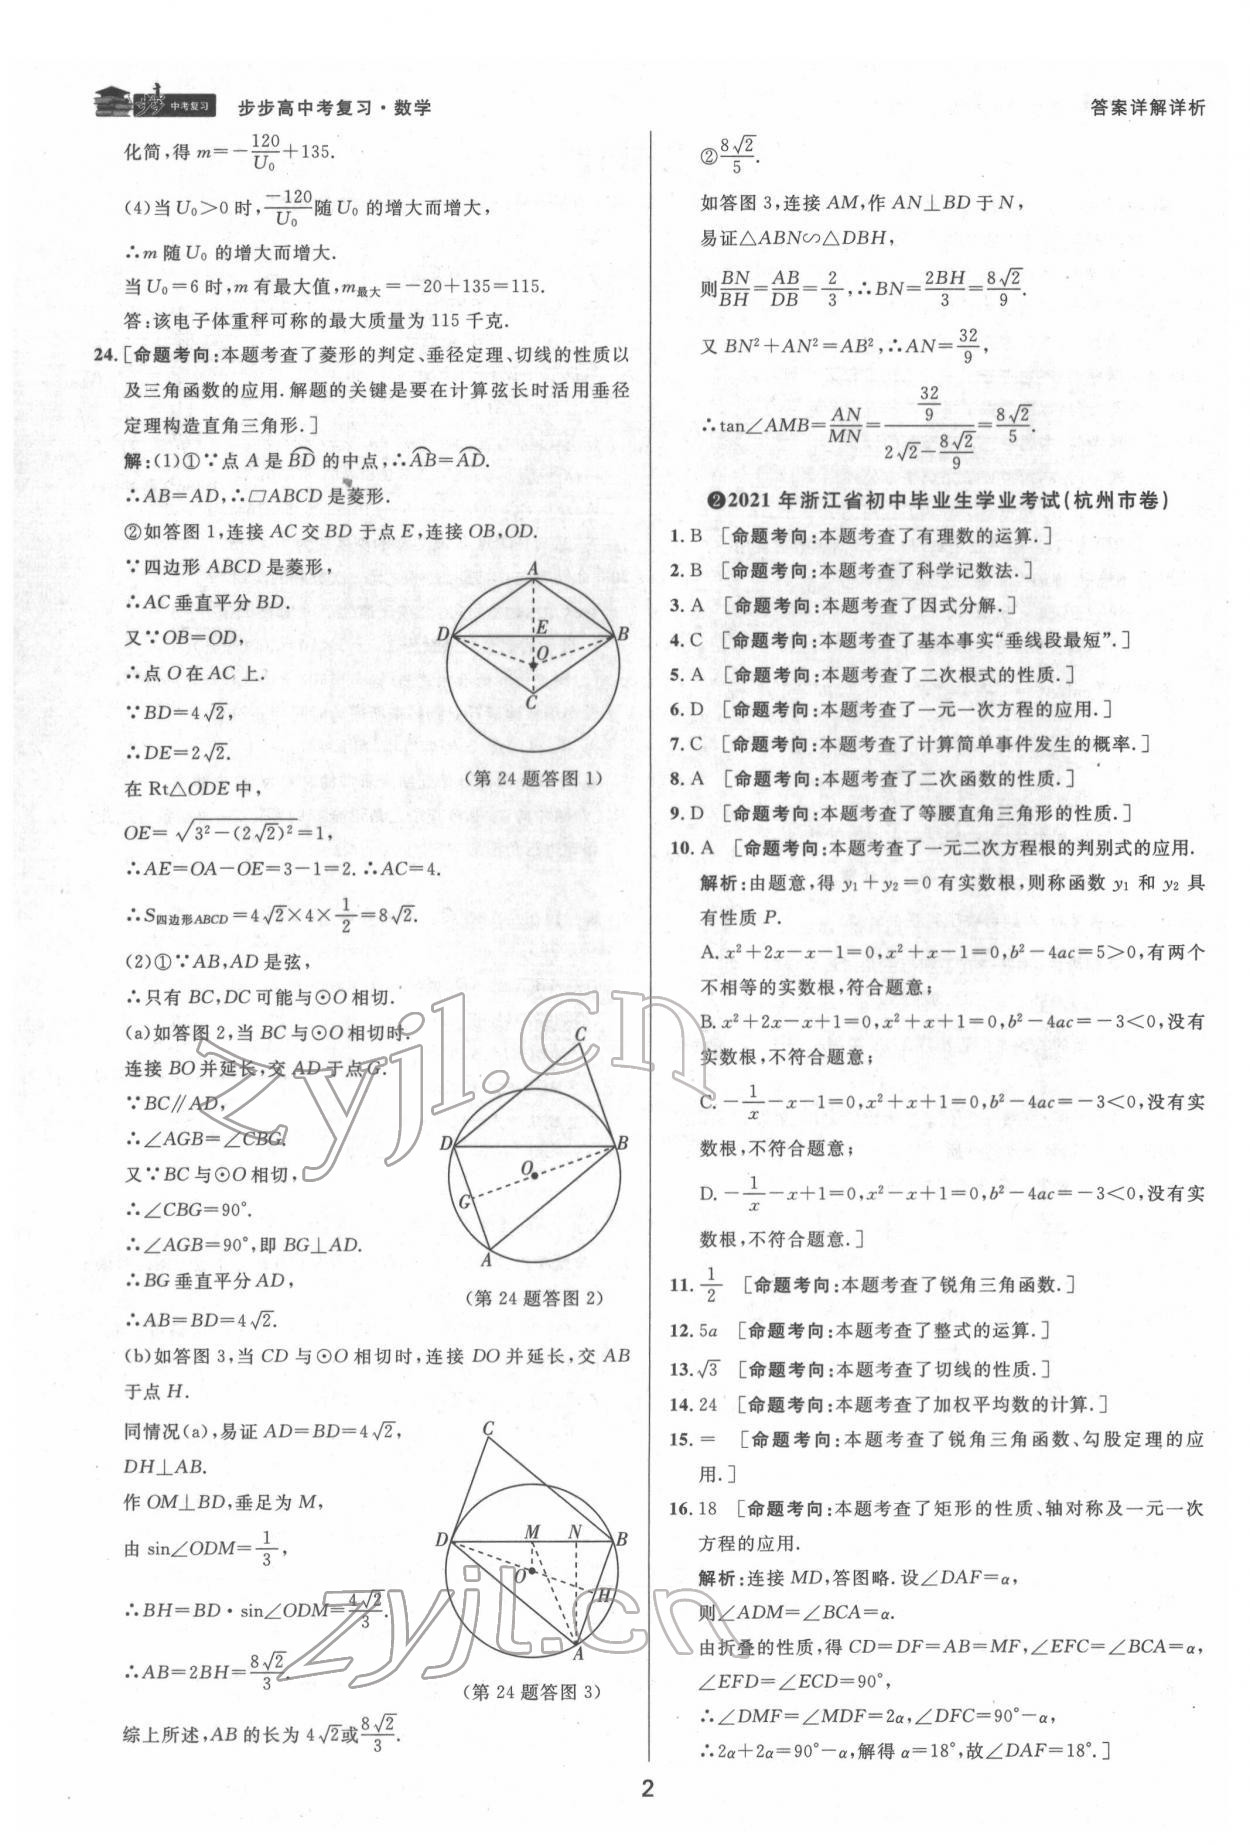 中考复习
步步高中考复习·数学
答案详解详析
化简,得 m=-120/U₀+135.
(4)当 U₀>0 时,-120/U₀随 U₀ 的增大而增大,
∴m 随 U₀ 的增大而增大.
当 U₀=6 时,m 有最大值,m最大=-20+135=115.
答:该电子体重秤可称的最大质量为 115 千克.
24.[命题考向:本题考查了菱形的判定、垂径定理、切线的性质以
及三角函数的应用.解题的关键是要在计算弦长时活用垂径
定理构造直角三角形.]
解:(1)①∵点 A 是⌒BD 的中点,∴⌒AB=⌒AD.
∴AB=AD,∴□ABCD 是菱形.
②如答图 1,连接 AC 交 BD 于点 E,连接 OB,OD.
∵四边形 ABCD 是菱形,
∴AC 垂直平分 BD.
又∵OB=OD,
∴点 O 在 AC 上.
∵BD=4√2,
∴DE=2√2.
在 Rt△ODE 中,
OE=√(3²-(2√2)²)=1,
∴AE=OA-OE=3-1=2.∴AC=4.
∴S四边形ABCD=4√2×4×1/2=8√2.
A
D
E
B
O
C
(第 24 题答图 1)
(2)①∵AB,AD 是弦,
∴只有 BC,DC 可能与⊙O 相切.
(a)如答图 2,当 BC 与⊙O 相切时.
连接 BO 并延长,交 AD 于点 G.
∵BC∥AD,
∴∠AGB=∠CBG.
又∵BC 与⊙O 相切,
∴∠CBG=90°.
∴∠AGB=90°,即 BG⊥AD.
∴BG 垂直平分 AD,
∴AB=BD=4√2.
C
D
B
O
G
A
(第 24 题答图 2)
(b)如答图 3,当 CD 与⊙O 相切时,连接 DO 并延长,交 AB
于点 H.
同情况(a),易证 AD=BD=4√2,
DH⊥AB.
作 OM⊥BD,垂足为 M,
由 sin∠ODM=1/3,
∴BH=BD·sin∠ODM=4√2/3.
∴AB=2BH=8√2/3.
综上所述,AB 的长为 4√2或8√2/3.
C
D
M
N
B
O
H
A
(第 24 题答图 3)
②8√2/5.
如答图 3,连接 AM,作 AN⊥BD 于 N,
易证△ABN∽△DBH,
则BN/BH=AB/DB=2/3,∴BN=2BH/3=8√2/9.
又 BN²+AN²=AB²,∴AN=32/9,
∴tan∠AMB=AN/MN=(32/9)/(2√2-8√2/9)=8√2/5.
❷2021 年浙江省初中毕业生学业考试(杭州市卷)
1.B [命题考向:本题考查了有理数的运算.]
2.B [命题考向:本题考查了科学记数法.]
3.A [命题考向:本题考查了因式分解.]
4.C [命题考向:本题考查了基本事实“垂线段最短”.]
5.A [命题考向:本题考查了二次根式的性质.]
6.D [命题考向:本题考查了一元一次方程的应用.]
7.C [命题考向:本题考查了计算简单事件发生的概率.]
8.A [命题考向:本题考查了二次函数的性质.]
9.D [命题考向:本题考查了等腰直角三角形的性质.]
10.A [命题考向:本题考查了一元二次方程根的判别式的应用.
解析:由题意,得 y₁+y₂=0 有实数根,则称函数 y₁ 和 y₂ 具
有性质 P.
A.x²+2x-x-1=0,x²+x-1=0,b²-4ac=5>0,有两个
不相等的实数根,符合题意;
B.x²+2x-x+1=0,x²+x+1=0,b²-4ac=-3<0,没有
实数根,不符合题意;
C.-1/x-x-1=0,x²+x+1=0,b²-4ac=-3<0,没有实
数根,不符合题意;
D.-1/x-x+1=0,x²-x+1=0,b²-4ac=-3<0,没有实
数根,不符合题意.]
11.1/2 [命题考向:本题考查了锐角三角函数.]
12.5a [命题考向:本题考查了整式的运算.]
13.√3 [命题考向:本题考查了切线的性质.]
14.24 [命题考向:本题考查了加权平均数的计算.]
15.= [命题考向:本题考查了锐角三角函数、勾股定理的应
用.]
16.18 [命题考向:本题考查了矩形的性质、轴对称及一元一次
方程的应用.
解析:连接 MD,答图略.设∠DAF=α,
则∠ADM=∠BCA=α.
由折叠的性质,得 CD=DF=AB=MF,∠EFC=∠BCA=α,
∠EFD=∠ECD=90°,
∴∠DMF=∠MDF=2α,∠DFC=90°-α,
∴2α+2α=90°-α,解得 α=18°,故∠DAF=18°.]
2
zyjl.cn
zyjl.cn